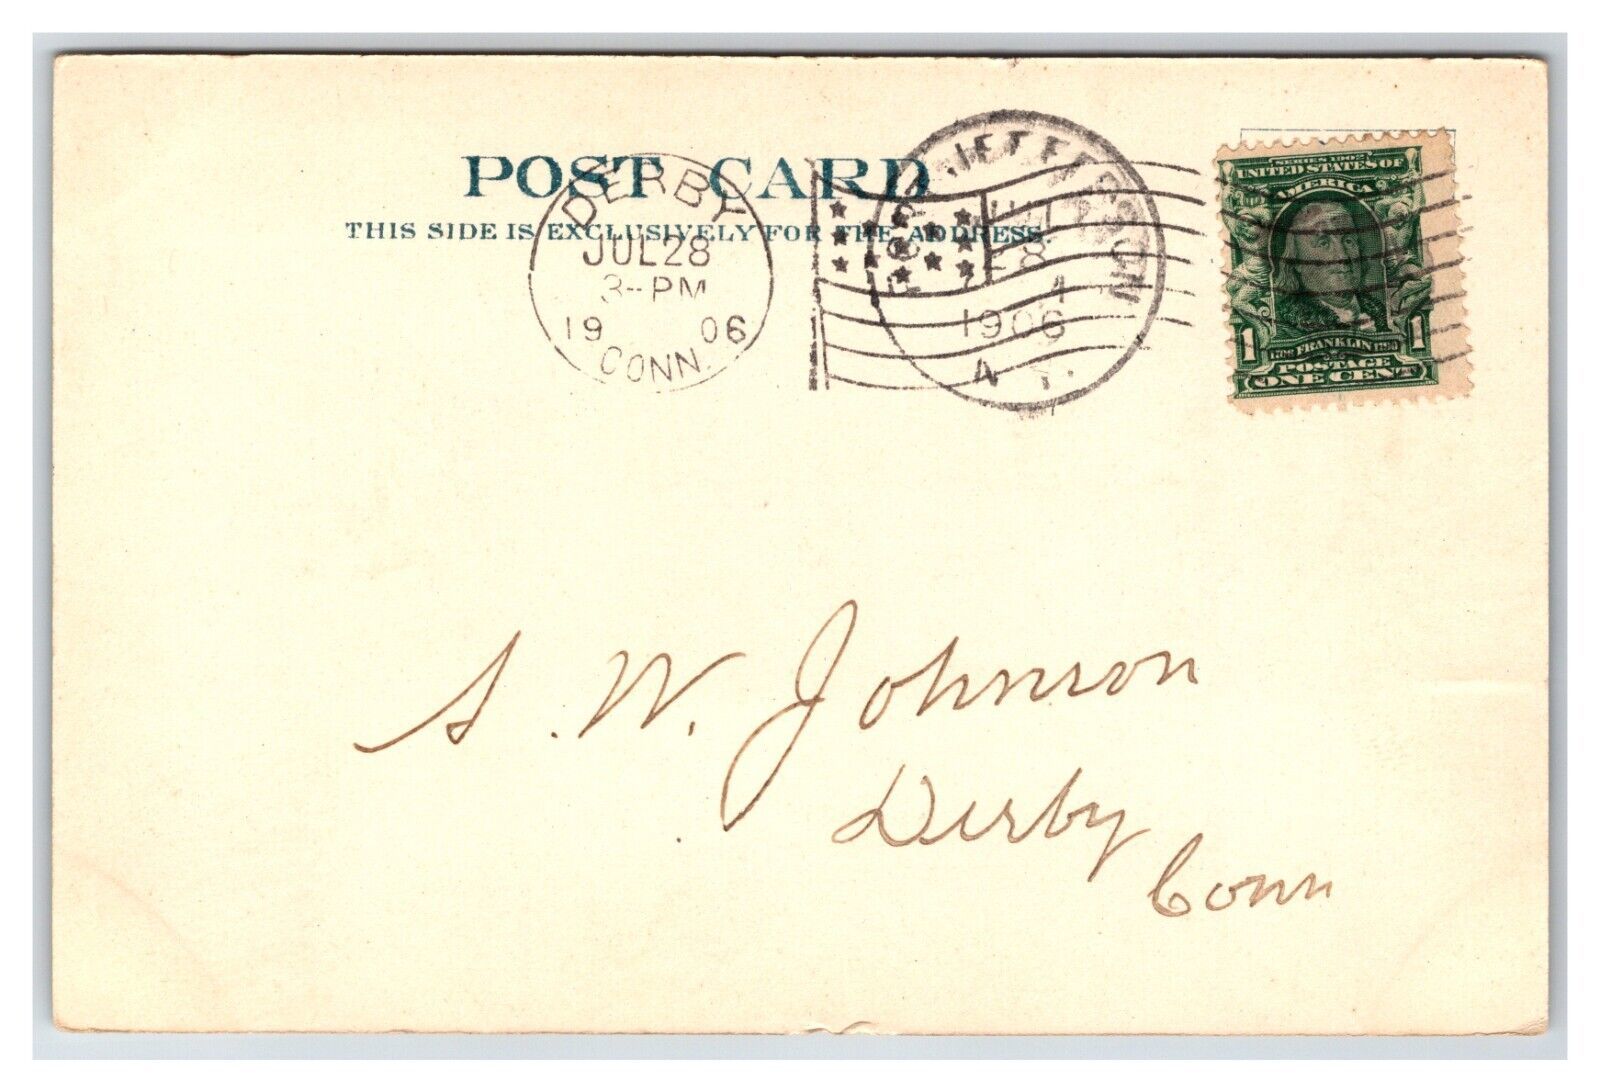 POST CARD
THIS SIDE IS EXCLUSIVELY FOR THE ADDRESS.
DERBY
JUL 28
3-PM
19 06
CONN.
PORT JEFFERSON
1906
N.Y.
SERIES 1902
UNITED STATES OF
AMERICA
1 FRANKLIN 1
POSTAGE
ONE CENT
S. W. Johnson
Derby
Conn